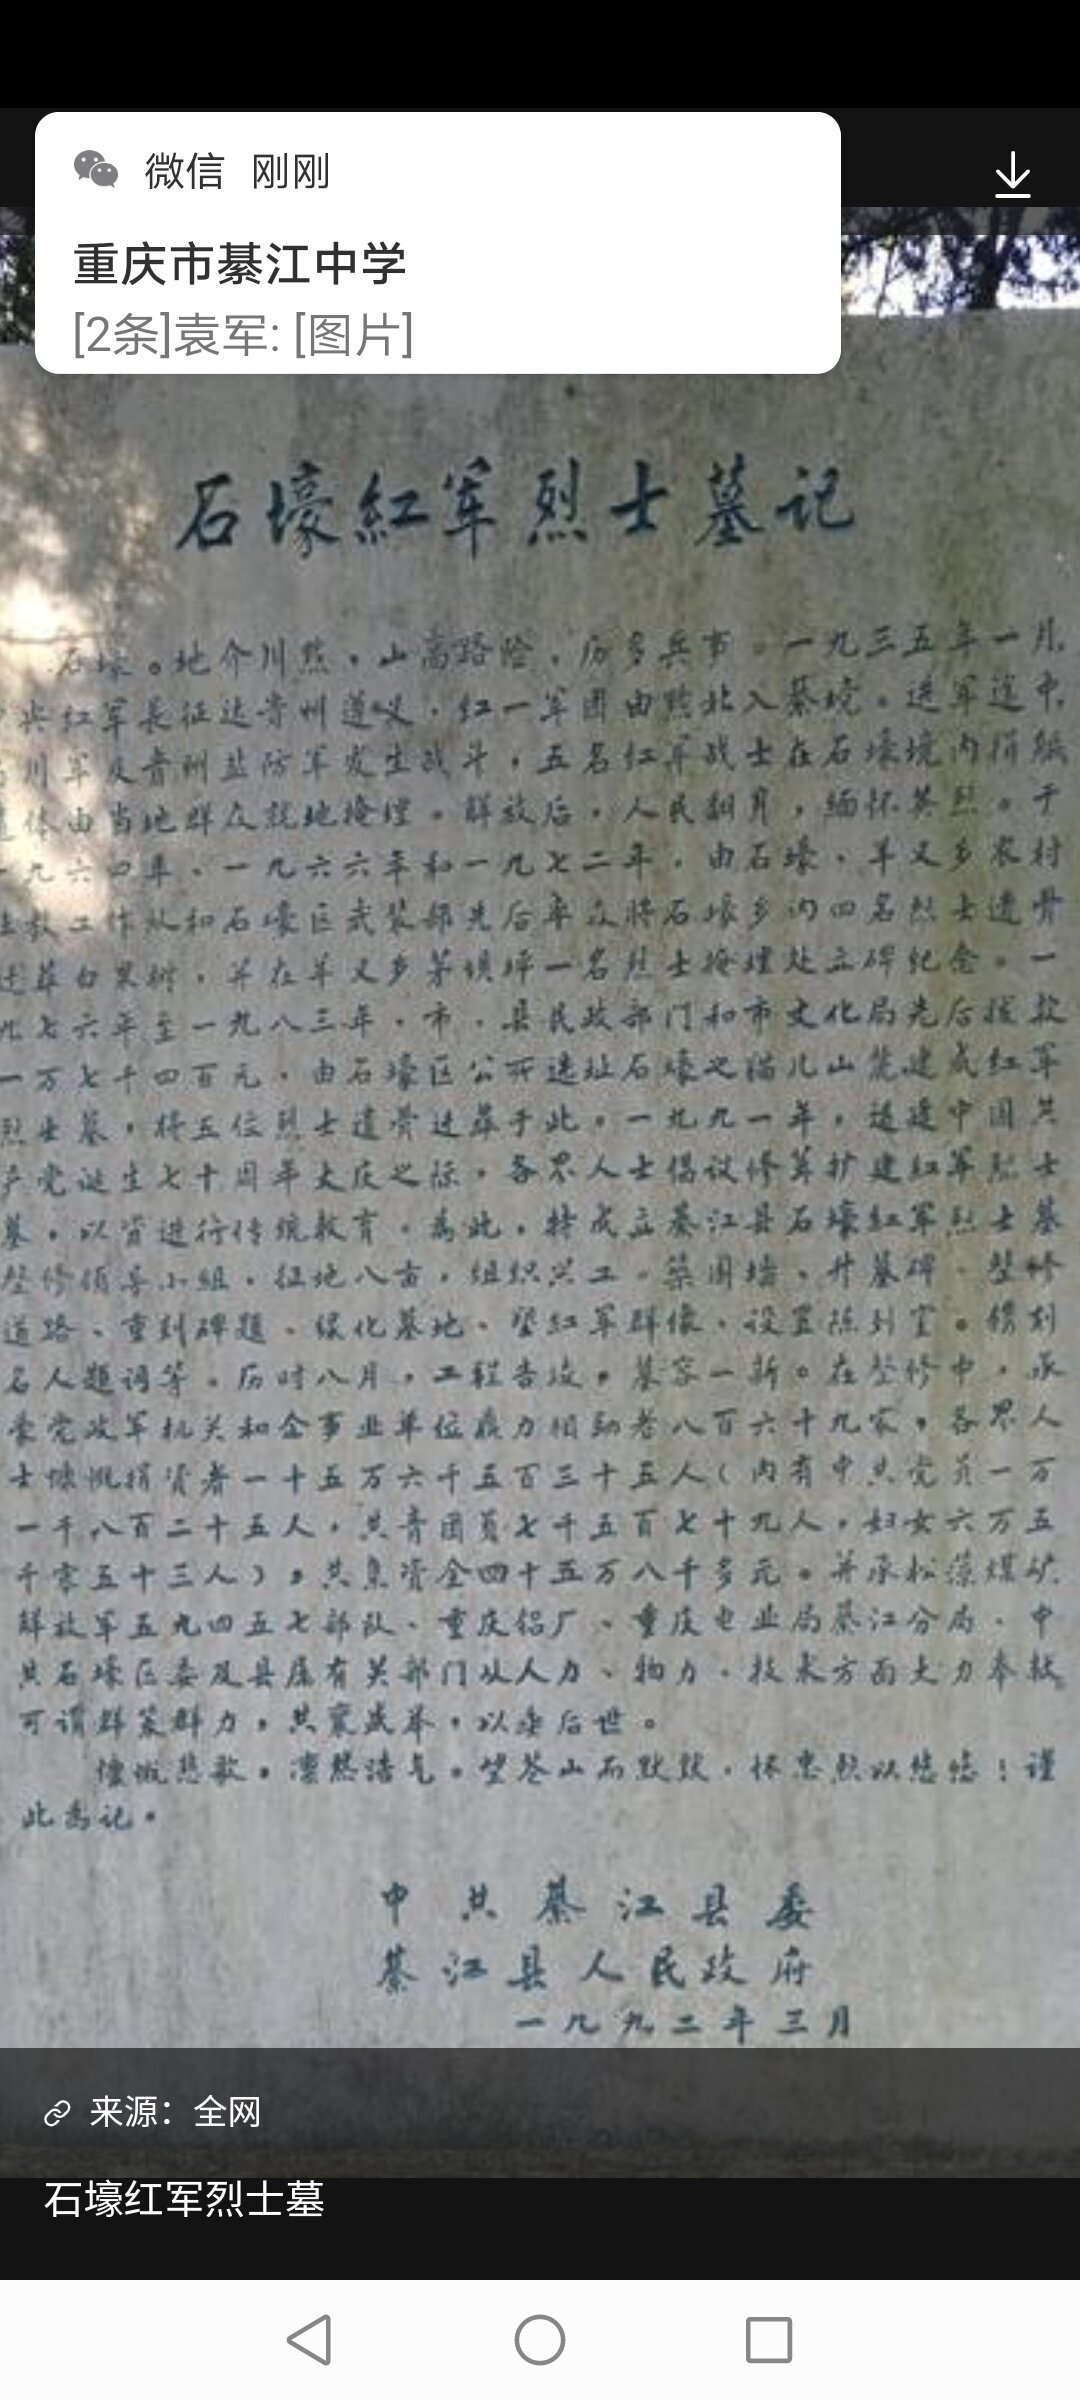 微信 刚刚
重庆市綦江中学
[2条]袁军: [图片]
石壕紅军烈士墓记
石壕。地介川黔，山高路险，历多兵事。一九三五年一月，
中央红军长征达贵州遵义，红一军团由黔北入綦境。进军途中，
川军及贵州盐防军发生战斗，五名红军战士在石壕境内捐躯
遗体由当地群众就地掩埋。解放后，人民翻身，缅怀英烈。于
一九六四年、一九六六年和一九七二年，由石壕、羊叉乡农村
社教工作队和石壕区武装部先后率众将石壕乡内四名烈士遗骨
迁葬白果树，并在羊叉乡茅坝坪一名烈士掩埋处立碑纪念。一
九七六年至一九八三年，市、县民政部门和市文化局先后拨款
一万七千四百元，由石壕区公所选址石壕之猫儿山麓建成红军
烈士墓，将五位烈士遗骨迁葬于此。一九九一年，适逢中国共
产党诞生七十周年大庆之际，各界人士倡议修葺扩建红军烈士
墓，以资进行传统教育。為此，特成立綦江县石壕紅军烈士墓
整修领导小组，征地八亩，组织兴工。築围墙、升墓碑、整修
道路、重刻碑题、绿化墓地、塑红军群像、设置陈列室。镌刻
名人题词等。历时八月，工程告竣，墓容一新。在整修中，承
蒙党政军机关和企事业单位鼎力相助者八百六十九家，各界人
士慷慨捐资者一十五万六千五百三十五人（内有中共党员一万
一千八百二十五人，共青团员七千五百七十九人，妇女六万五
千零五十三人），共集资金四十五万八千多元。并承松藻煤矿、
解放军五九四五七部队、重庆铝厂、重庆电业局綦江分局、中
共石壕区委及县属有关部门从人力、物力、技术方面大力奉献。
可谓群策群力，共襄盛举，以垂后世。
慷慨悲歌。凛然浩气。望苍山而默默，怀忠烈以悠悠！谨
此為记。
中共綦江县委
綦江县人民政府
一九九二年三月
来源：全网
石壕红军烈士墓